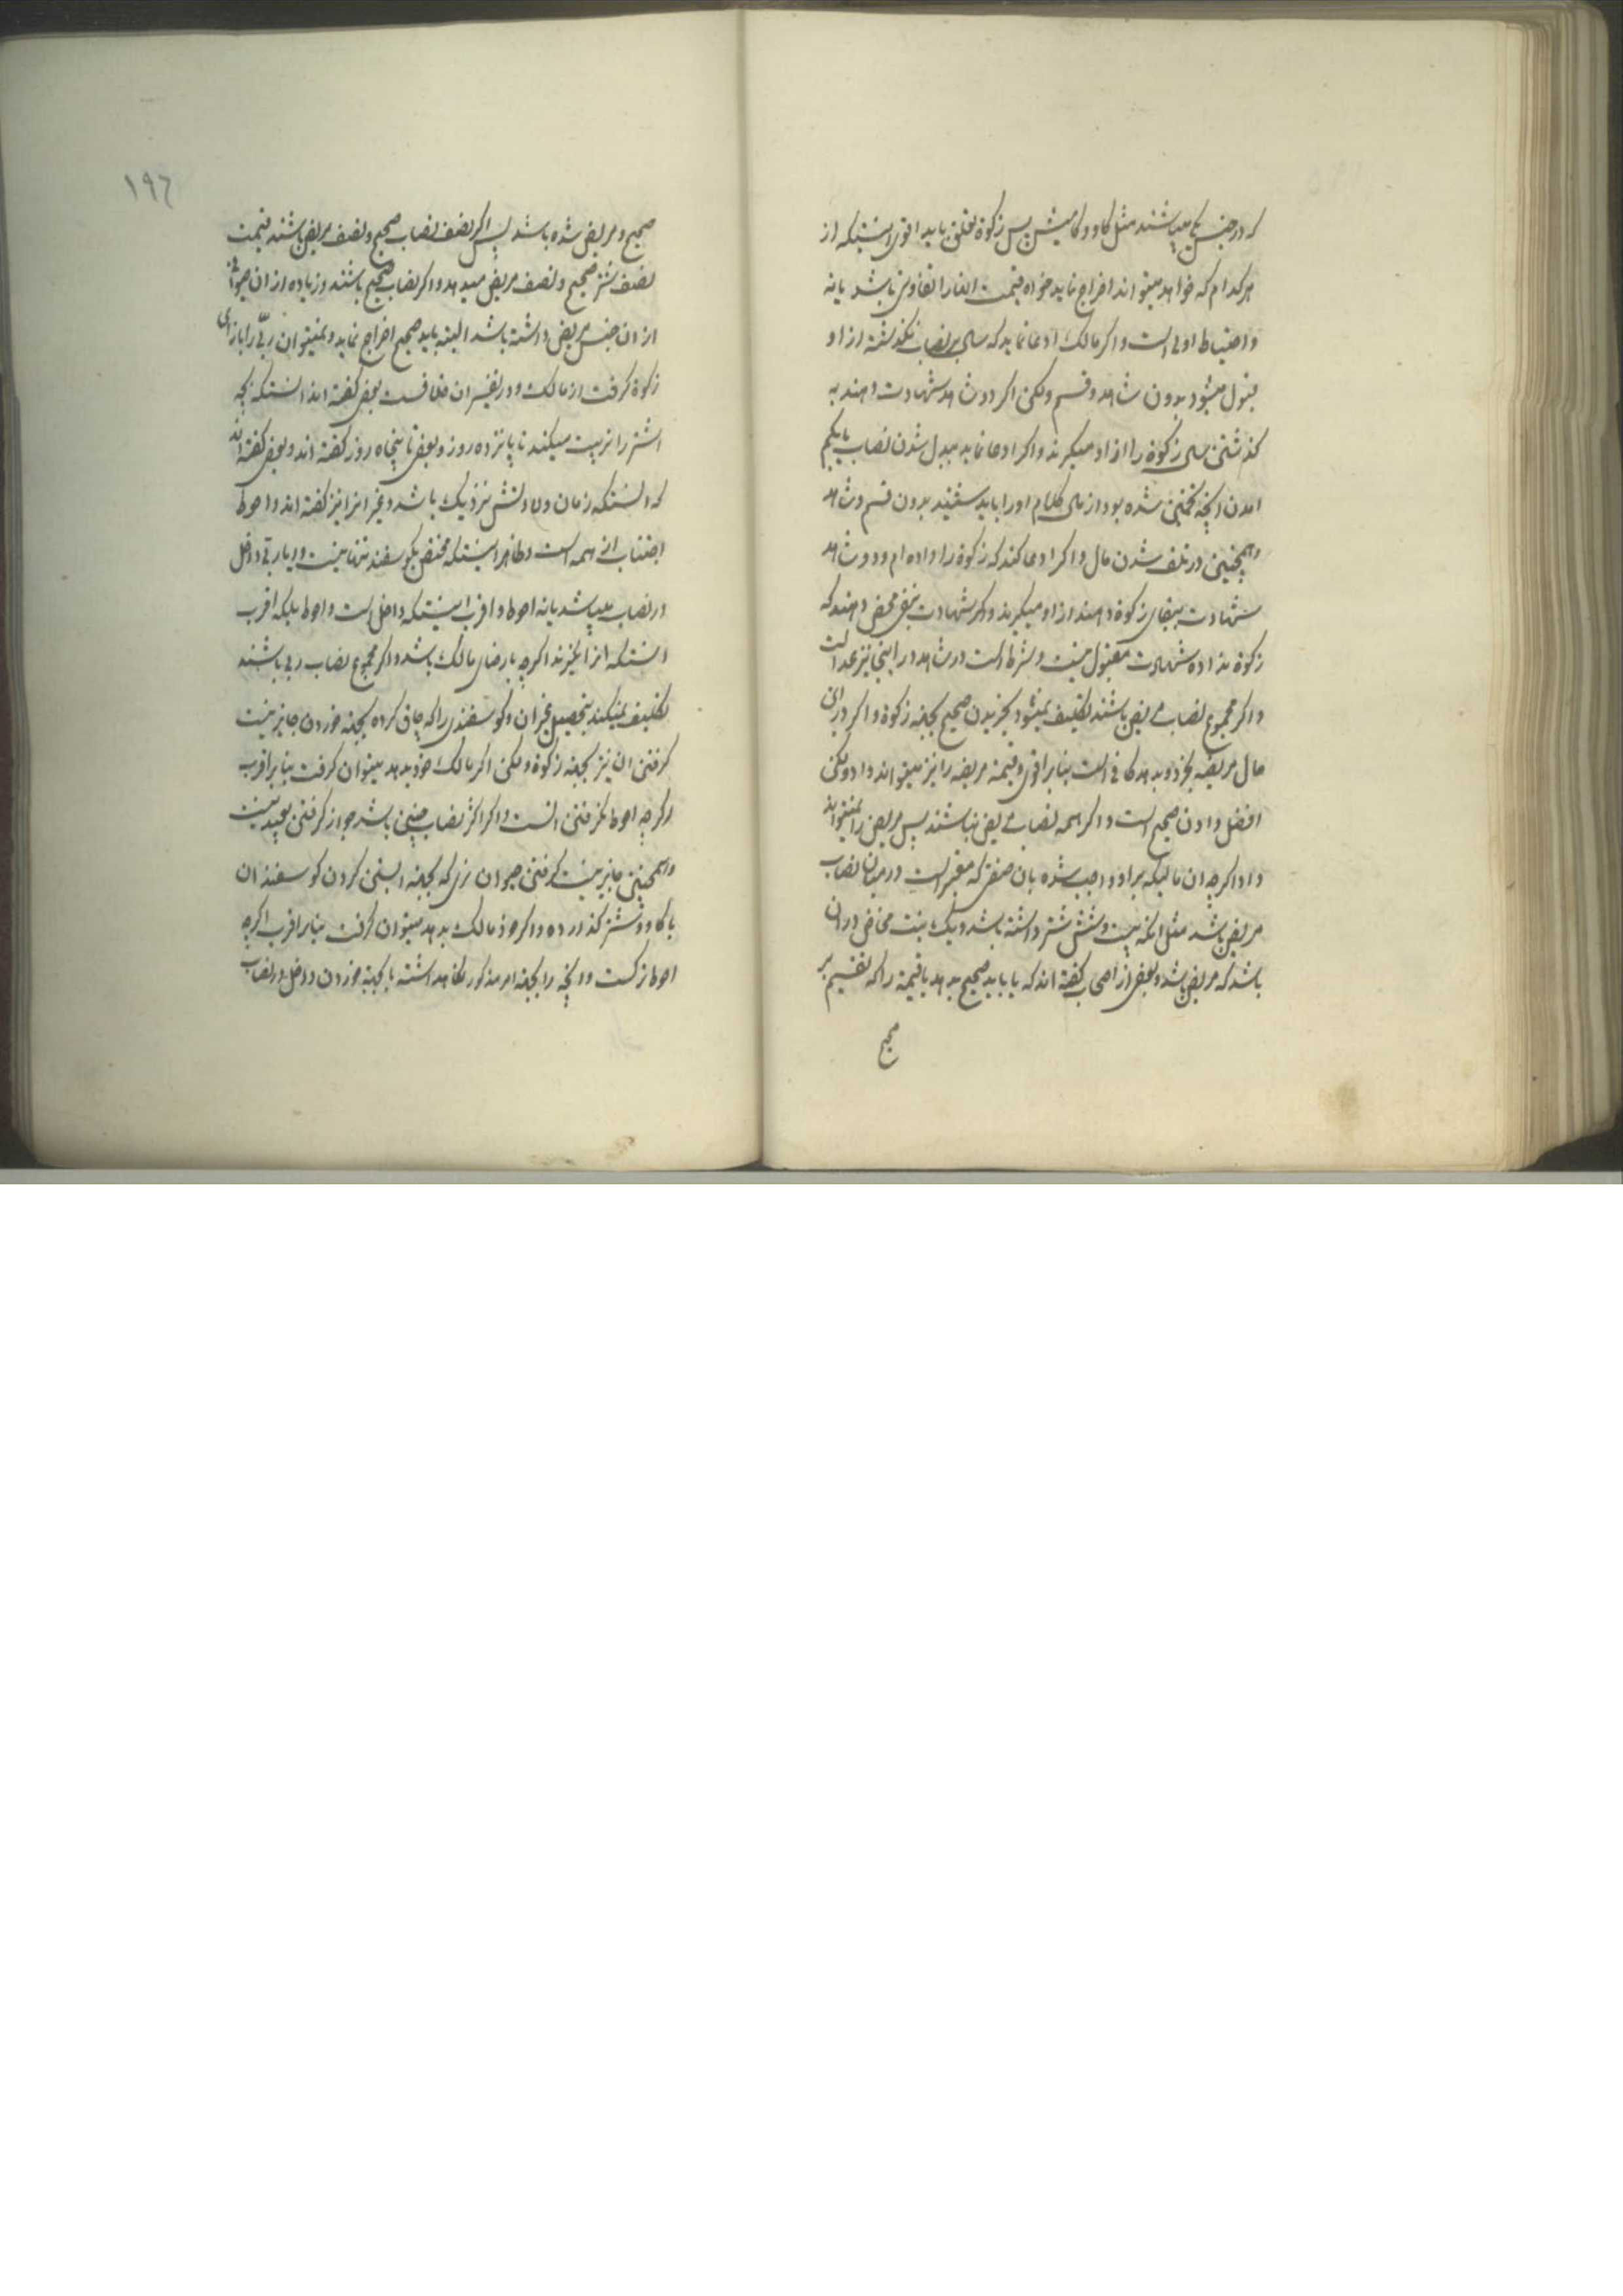 که در جنس یکی میباشند مثل گاو و گامیش پس زکوة تعلق یابد اقوی اینستکه از
هر کدام که خواهد میتواند اخراج نماید خواه قیمت آنها را تفاوتی باشد یا نه
و احتیاط اولی است و اگر مالک ادعا نماید که سال بر نصاب نگذشته از او
قبول میشود بدون شاهد و قسم ولکن اگر دو شاهد شهادت دهند به
گذشتن سال زکوة را از او میگیرند و اگر ادعا نماید مبدل شدن نصاب یا بکم
امدن آنچه تخمین شده بود از مال کلام او را باید شنید بدون قسم و شاهد
و همچنین در تلف شدن مال و اگر ادعا کند که زکوة را داده ام و دو شاهد
شهادت ببقای زکوة دهند از او میگیرند و اگر شهادت بنفی محض دهند که
زکوة نداده شهادت مقبول نیست و شرط است در شاهد در اینجا نیز عدالت
و اگر مجموع نصاب مریض باشند تکلیف نمیشود بخریدن صحیح بجهة زکوة و اگر در این
حال مریضه بخرد و بدهد کافی است بنابر اقوی و قیمة مریضه را نیز میتواند داد ولکن
افضل دادن صحیح است و اگر همه نصاب مریض نباشند پس مریض را نمیتواند
داد اگرچه ان مالیکه بر او واجب شده بان صفتی که معتبر است در میان نصاب
مریض باشد مثل انکه بیست و شش شتر داشته باشد و یک بنت مخاض در ان
باشد که مریض باشد و بعضی از اصحاب گفته اند که یا باید صحیح بدهد یا قیمة را که تقسیم بر
صحیح
١٩٦
صحیح و مریض شده باشد پس اگر نصف نصاب صحیح و نصف مریض باشند قیمت
نصف شتر صحیح و نصف مریض میدهد و اگر نصاب صحیح باشند و زیاده از ان حیوانی
از ان جنس مریض داشته باشد البته باید صحیح اخراج نماید و نمیتوان ربّی را بازای
زکوة گرفت از مالک و در تفسیر ان خلافست بعضی گفته اند انستکه بچه
اش را تربیت میکند تا پانزده روز و بعضی تا پنجاه روز گفته اند و بعضی گفته اند
که انستکه زمان ولادتش نزدیک باشد و غیر انرا نیز گفته اند و احوط
اجتناب از همه است و ظاهر اینستکه مختص بگوسفند تنها نیست و ایا ربی داخل
در نصاب میباشد یا نه احوط و اقرب اینستکه داخل است و احوط بلکه اقرب
انستکه انرا نگیرند اگرچه با رضای مالک باشد و اگر مجموع نصاب ربی باشند
تکلیف نمیکند بتحصیل غیر ان و گوسفندی را که چاق کرده بجهة خوردن جایز نیست
گرفتن ان نیز بجهة زکوة ولکن اگر مالک خود بدهد میتوان گرفت بنابر اقرب
اگرچه احوط نگرفتن انست و اگر اکثر نصاب چنین باشد جواز گرفتن بعید نیست
و همچنین جایز نیست گرفتن حیوان نری که بجهة ابستن کردن گوسفندان
یا گاو و شتر گذارده و اگر خود مالک بدهد میتوان گرفت بنابر اقرب اگرچه
احوط ترکست و انچه را بجهة امر مذکور نگاه داشته یا بجهة خوردن داخل در نصاب